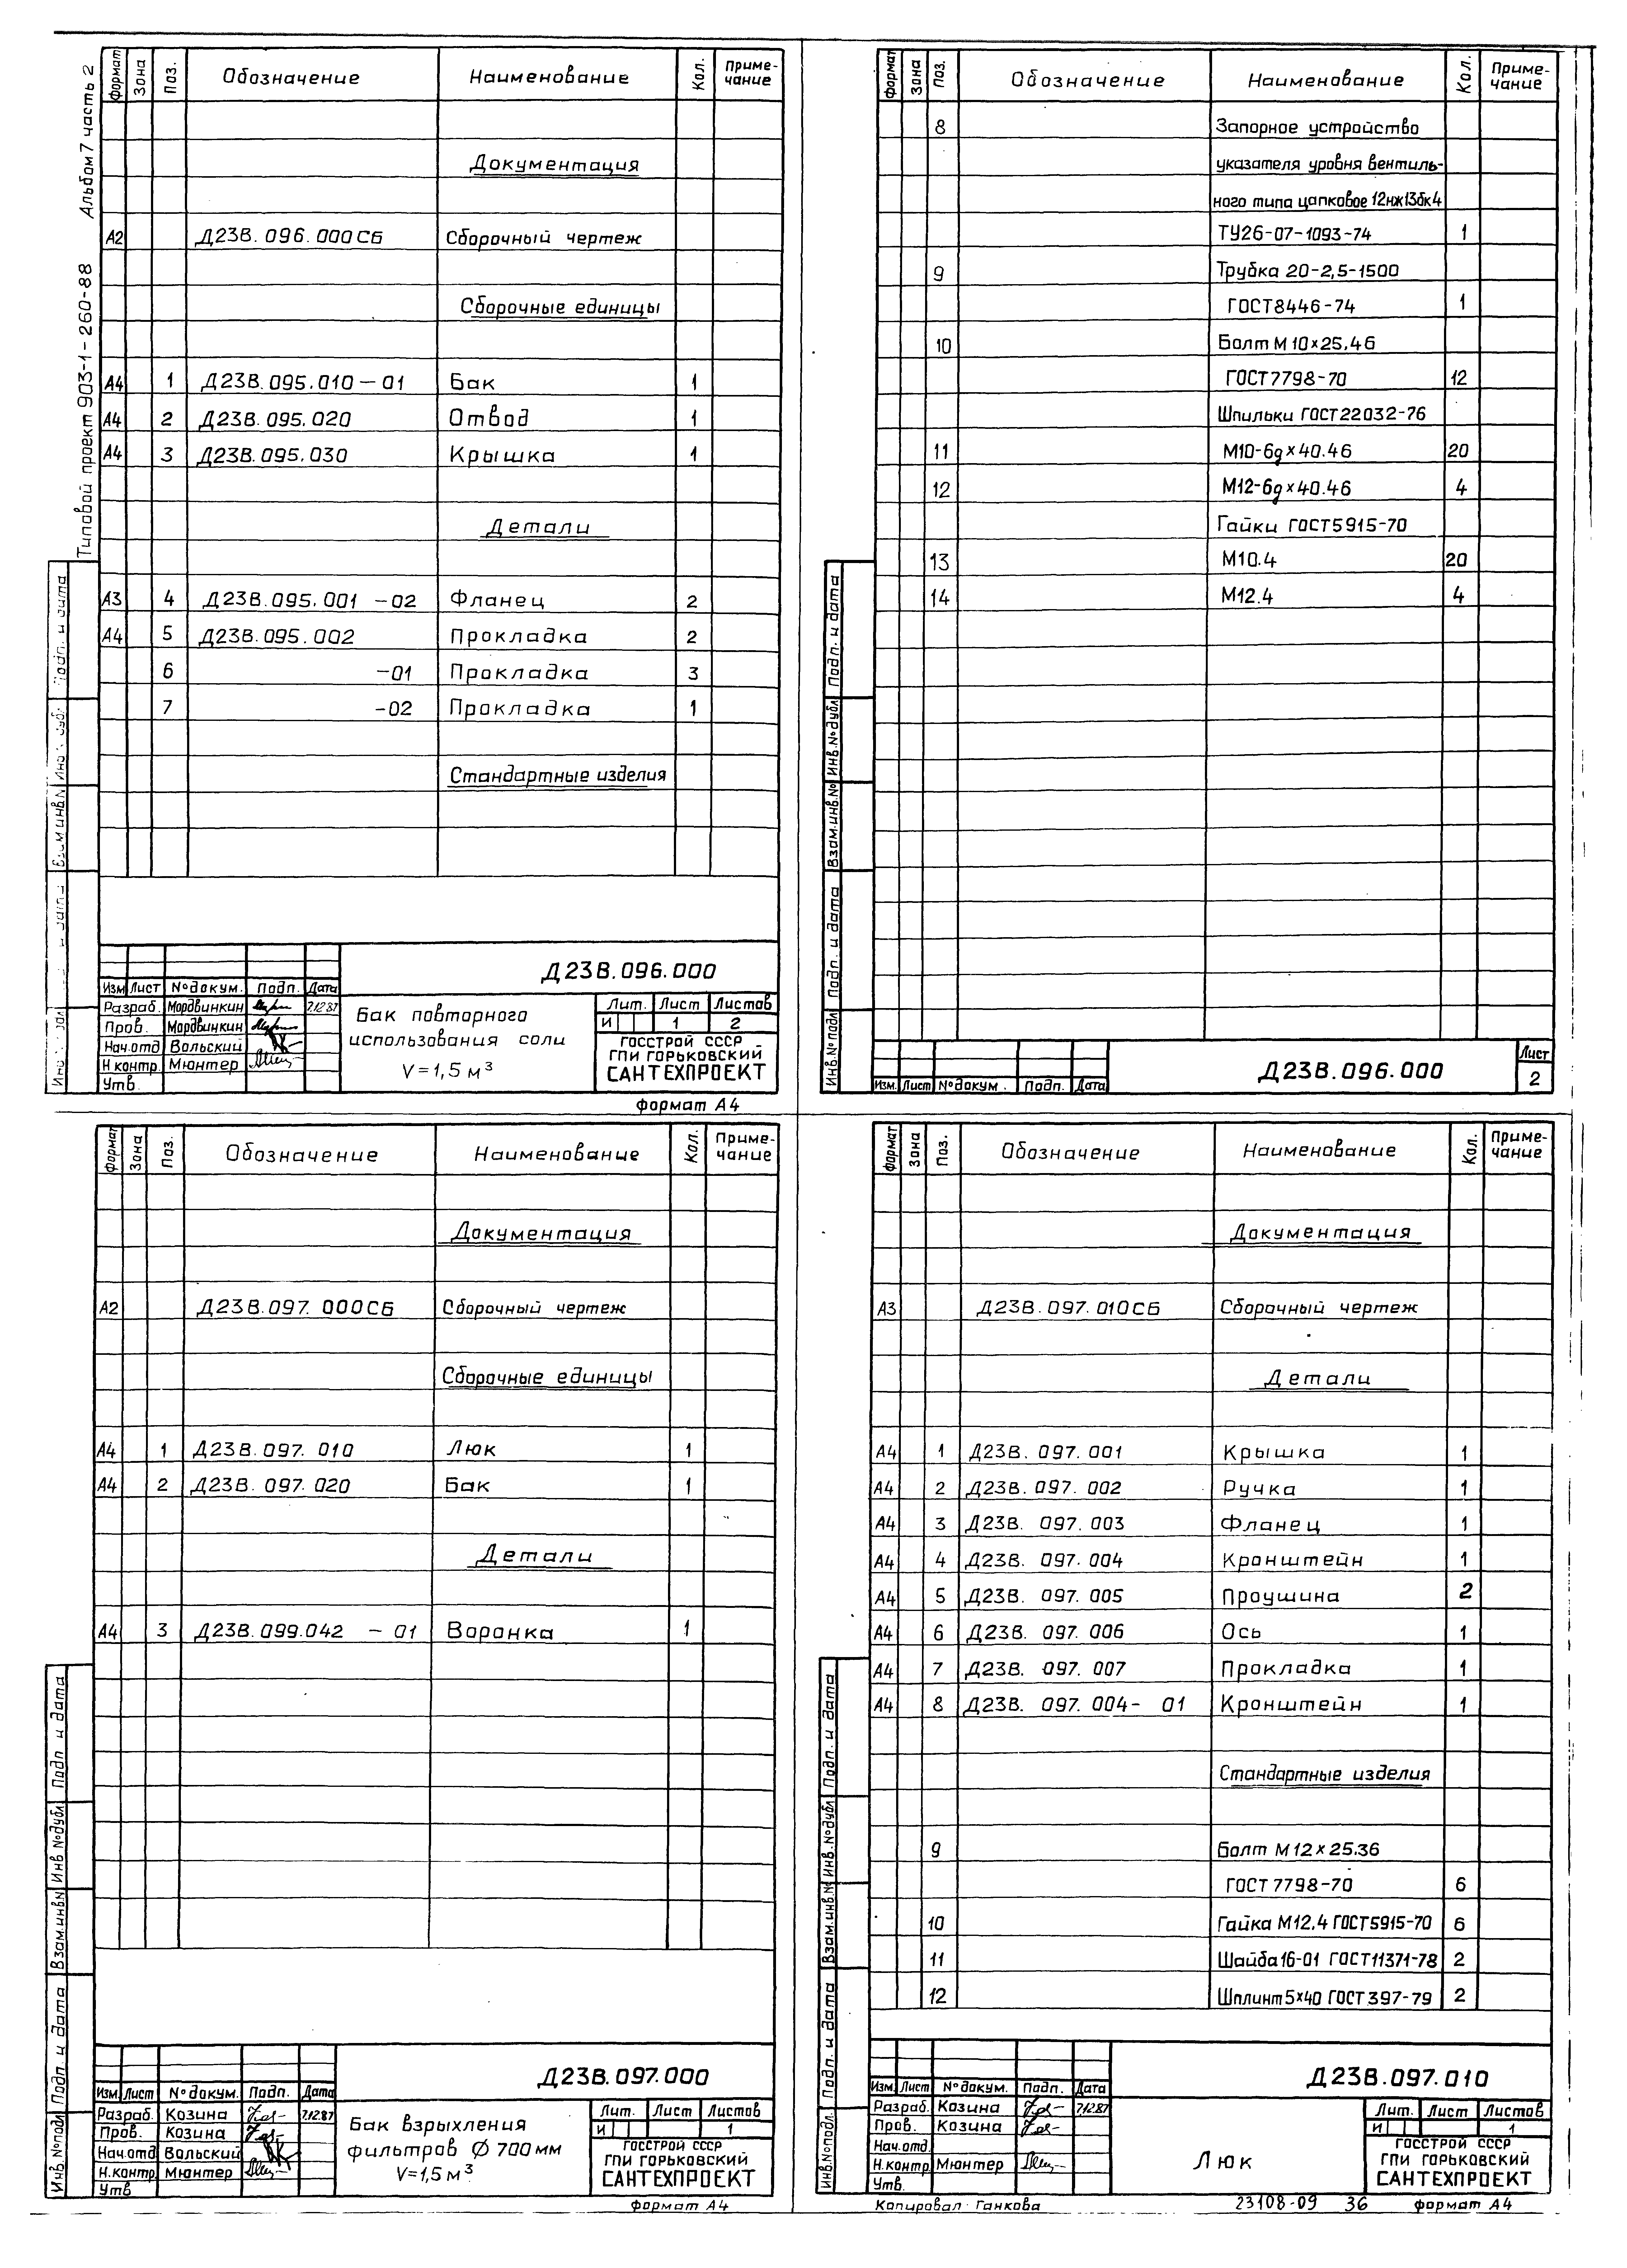 Типовой проект 903-1-260-88 Альбом 7 часть 2
формат Зона Поз. Обозначение Наименование Кол. Приме-
чание
Документация
А2 Д23В.096.000СБ Сборочный чертеж
Сборочные единицы
А4 1 Д23В.095.010-01 Бак 1
А4 2 Д23В.095.020 Отвод 1
А4 3 Д23В.095.030 Крышка 1
Детали
А3 4 Д23В.095.001 -02 Фланец 2
А4 5 Д23В.095.002 Прокладка 2
6 -01 Прокладка 3
7 -02 Прокладка 1
Стандартные изделия
Д23В.096.000
Изм Лист №докум. Подп. Дата
Разраб. Мордвинкин 7.12.87
Пров. Мордвинкин
Нач.отд Вольский
Н контр. Мюнтер
Утв.
Бак повторного
использования соли
V=1,5 м³
Лит. Лист Листов
И 1 2
ГОССТРОЙ СССР
ГПИ ГОРЬКОВСКИЙ
САНТЕХПРОЕКТ
формат А4
формат Зона Поз. Обозначение Наименование Кол. Приме-
чание
8 Запорное устройство
указателя уровня вентиль-
ного типа цапковое 12нж13бк4
ТУ26-07-1093-74 1
9 Трубка 20-2,5-1500
ГОСТ8446-74 1
10 Болт М10×25.46
ГОСТ7798-70 12
Шпильки ГОСТ22032-76
11 М10-6g×40.46 20
12 М12-6g×40.46 4
Гайки ГОСТ5915-70
13 М10.4 20
14 М12.4 4
Инв.№подл Подп. и дата Взам.инв.№ Инв.№дубл Подп. и дата
Изм. Лист №докум. Подп. Дата
Д23В.096.000
Лист
2
формат Зона Поз. Обозначение Наименование Кол. Приме-
чание
Документация
А2 Д23В.097.000СБ Сборочный чертеж
Сборочные единицы
А4 1 Д23В.097.010 Люк 1
А4 2 Д23В.097.020 Бак 1
Детали
А4 3 Д23В.099.042 - 01 Воронка 1
Инв.№подл Подп. и дата Взам.инв.№ Инв №дубл Подп и дата
Д23В.097.000
Изм. Лист №докум. Подп. Дата
Разраб. Козина 7.12.87
Пров. Козина
Нач.отд Вольский
Н.контр. Мюнтер
Утв
Бак взрыхления
фильтров Ø700мм
V=1,5м³
Лит. Лист Листов
И 1
ГОССТРОЙ СССР
ГПИ ГОРЬКОВСКИЙ
САНТЕХПРОЕКТ
формат А4
формат Зона Поз. Обозначение Наименование Кол. Приме-
чание
Документация
А3 Д23В.097.010СБ Сборочный чертеж
Детали
А4 1 Д23В.097.001 Крышка 1
А4 2 Д23В.097.002 Ручка 1
А4 3 Д23В.097.003 Фланец 1
А4 4 Д23В.097.004 Кронштейн 1
А4 5 Д23В.097.005 Проушина 2
А4 6 Д23В.097.006 Ось 1
А4 7 Д23В.097.007 Прокладка 1
А4 8 Д23В.097.004- 01 Кронштейн 1
Стандартные изделия
9 Болт М12×25.36
ГОСТ7798-70 6
10 Гайка М12.4 ГОСТ5915-70 6
11 Шайба16-01 ГОСТ11371-78 2
12 Шплинт5×40 ГОСТ397-79 2
Инв.№подл. Подп. и дата Взам.инв.№ Инв.№дубл Подп. и дата
Д23В.097.010
Изм. Лист №докум. Подп. Дата
Разраб. Козина 7.12.87
Пров. Козина
Нач.отд.
Н.контр. Мюнтер
Утв.
Люк
Лит. Лист Листов
И 1
ГОССТРОЙ СССР
ГПИ ГОРЬКОВСКИЙ
САНТЕХПРОЕКТ
Копировал Ганкова 23108-09 36 формат А4